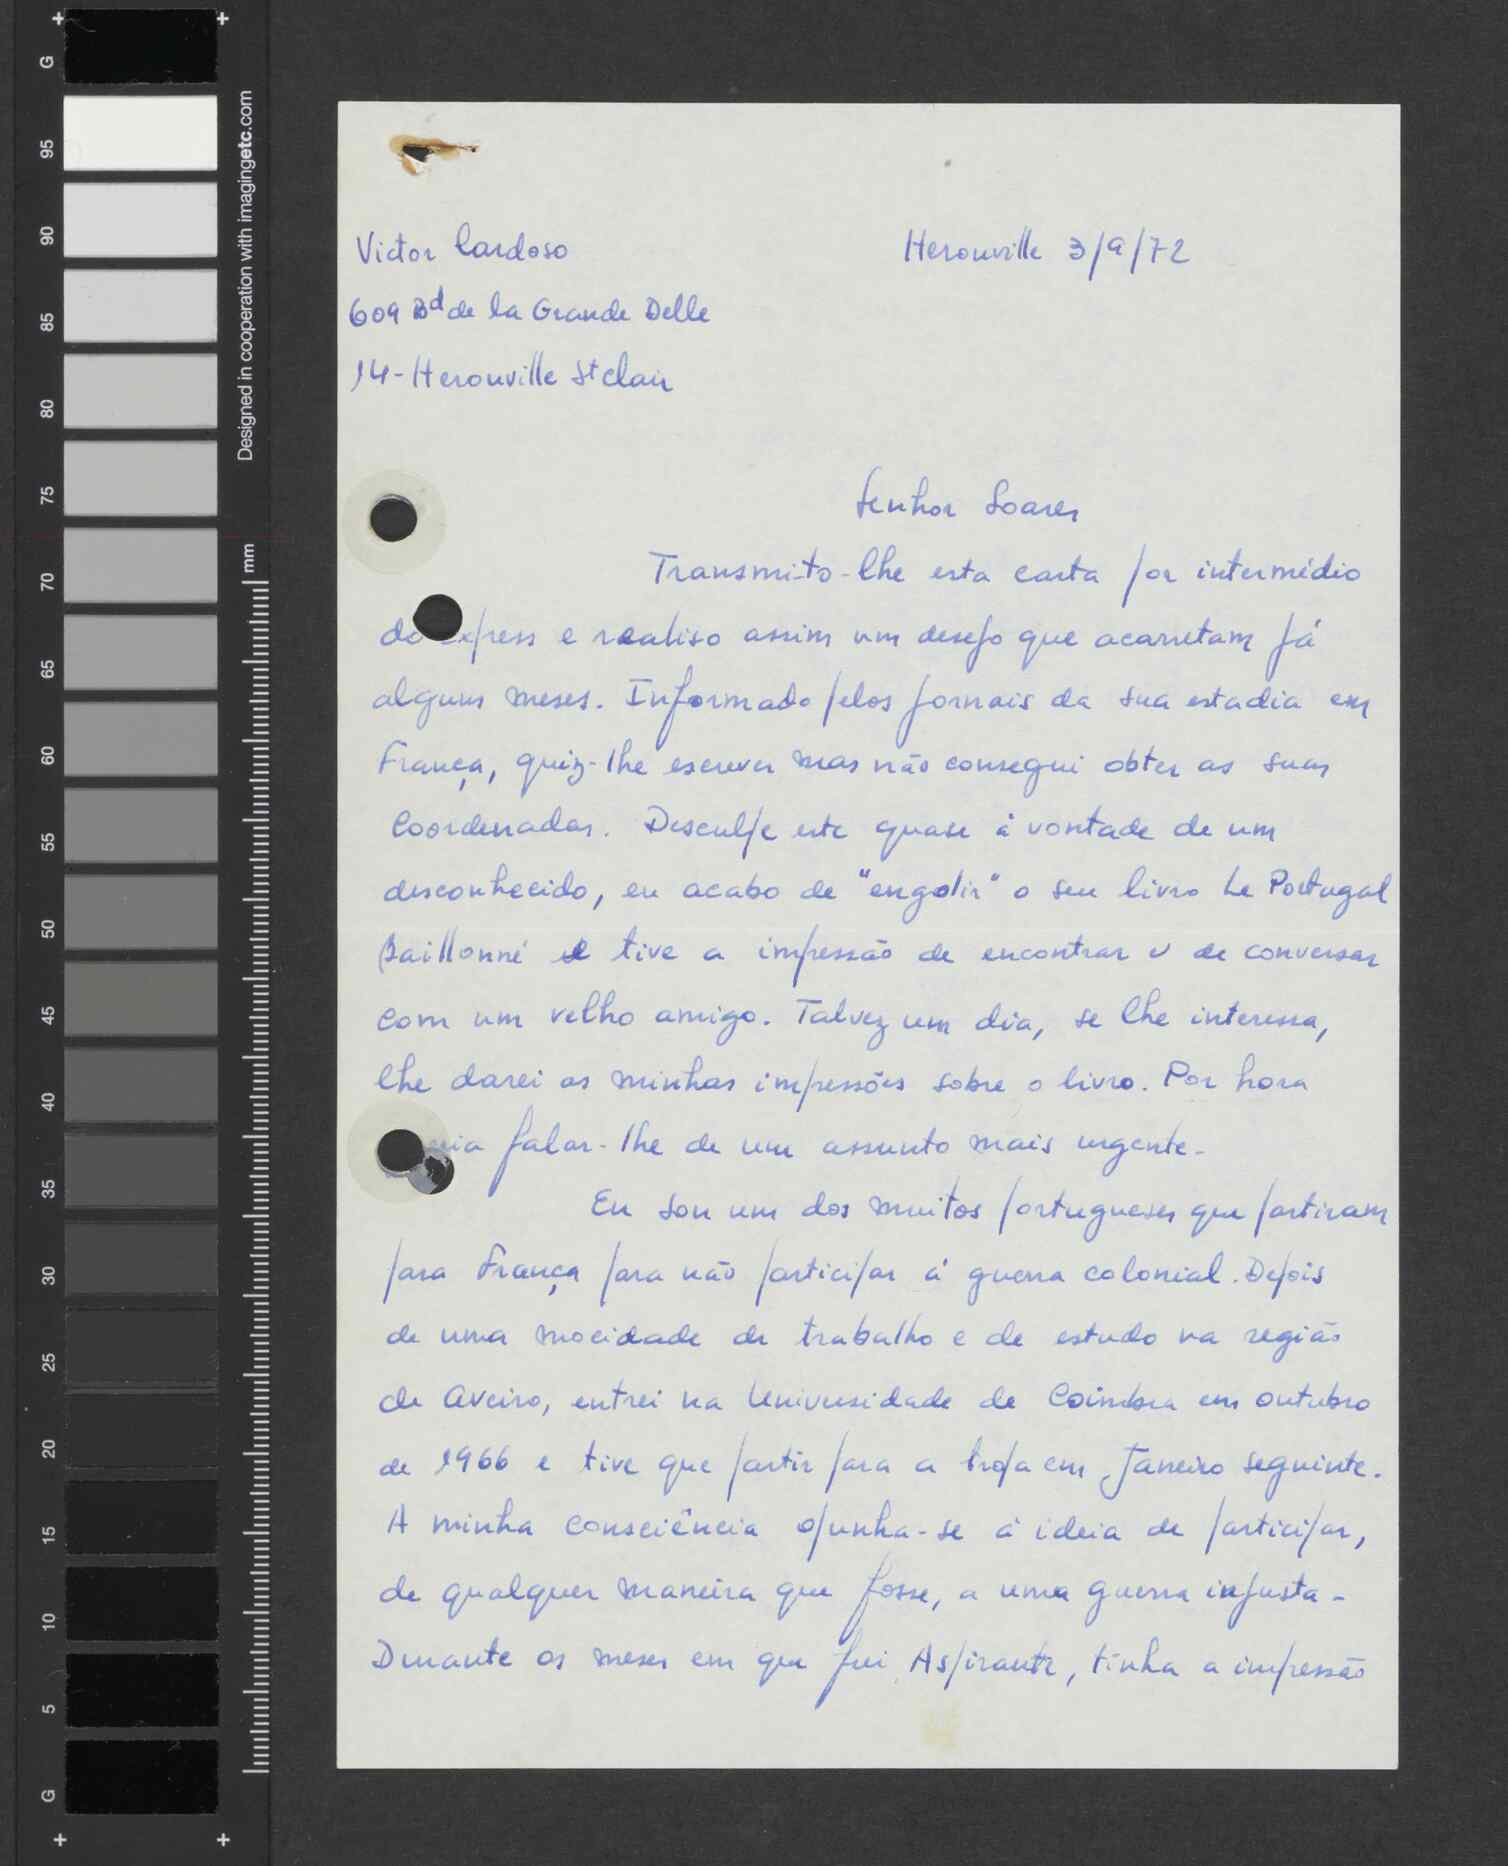 Victor Cardoso
Herouville 3/9/72
609 Bd de la Grande Delle
14-Herouville St clair
Senhor Soares
Transmito-lhe esta carta por intermédio
do express e realiso assim um desejo que acarretam já
alguns meses. Informado pelos jornais da sua estadia em
França, quiz-lhe escrever mas não consegui obter as suas
Coordenadas. Desculpe este quase à vontade de um
desconhecido, eu acabo de "engolir" o seu livro Le Portugal
Baillonné e tive a impressão de encontrar e de conversar
com um velho amigo. Talvez um dia, se lhe interessa,
lhe darei as minhas impressões sobre o livro. Por hora
falar-lhe de um assunto mais urgente.
Eu sou um dos muitos portugueses que partiram
para França para não participar à guerra colonial. Depois
de uma mocidade de trabalho e de estudo na região
de Aveiro, entrei na Universidade de Coimbra em outubro
de 1966 e tive que partir para a tropa em Janeiro seguinte.
A minha consciência opunha-se à ideia de participar,
de qualquer maneira que fosse, a uma guerra injusta.
Durante os meses em que fui Aspirante, tinha a impressão
G
95
90
85
80
75
70
65
60
55
50
45
40
35
30
25
20
15
10
5
G
Designed in cooperation with imagingetc.com
mm